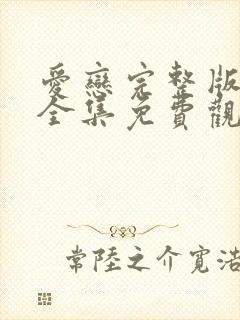 愛戀完整版
全集免費觀
常陸之介寬浩